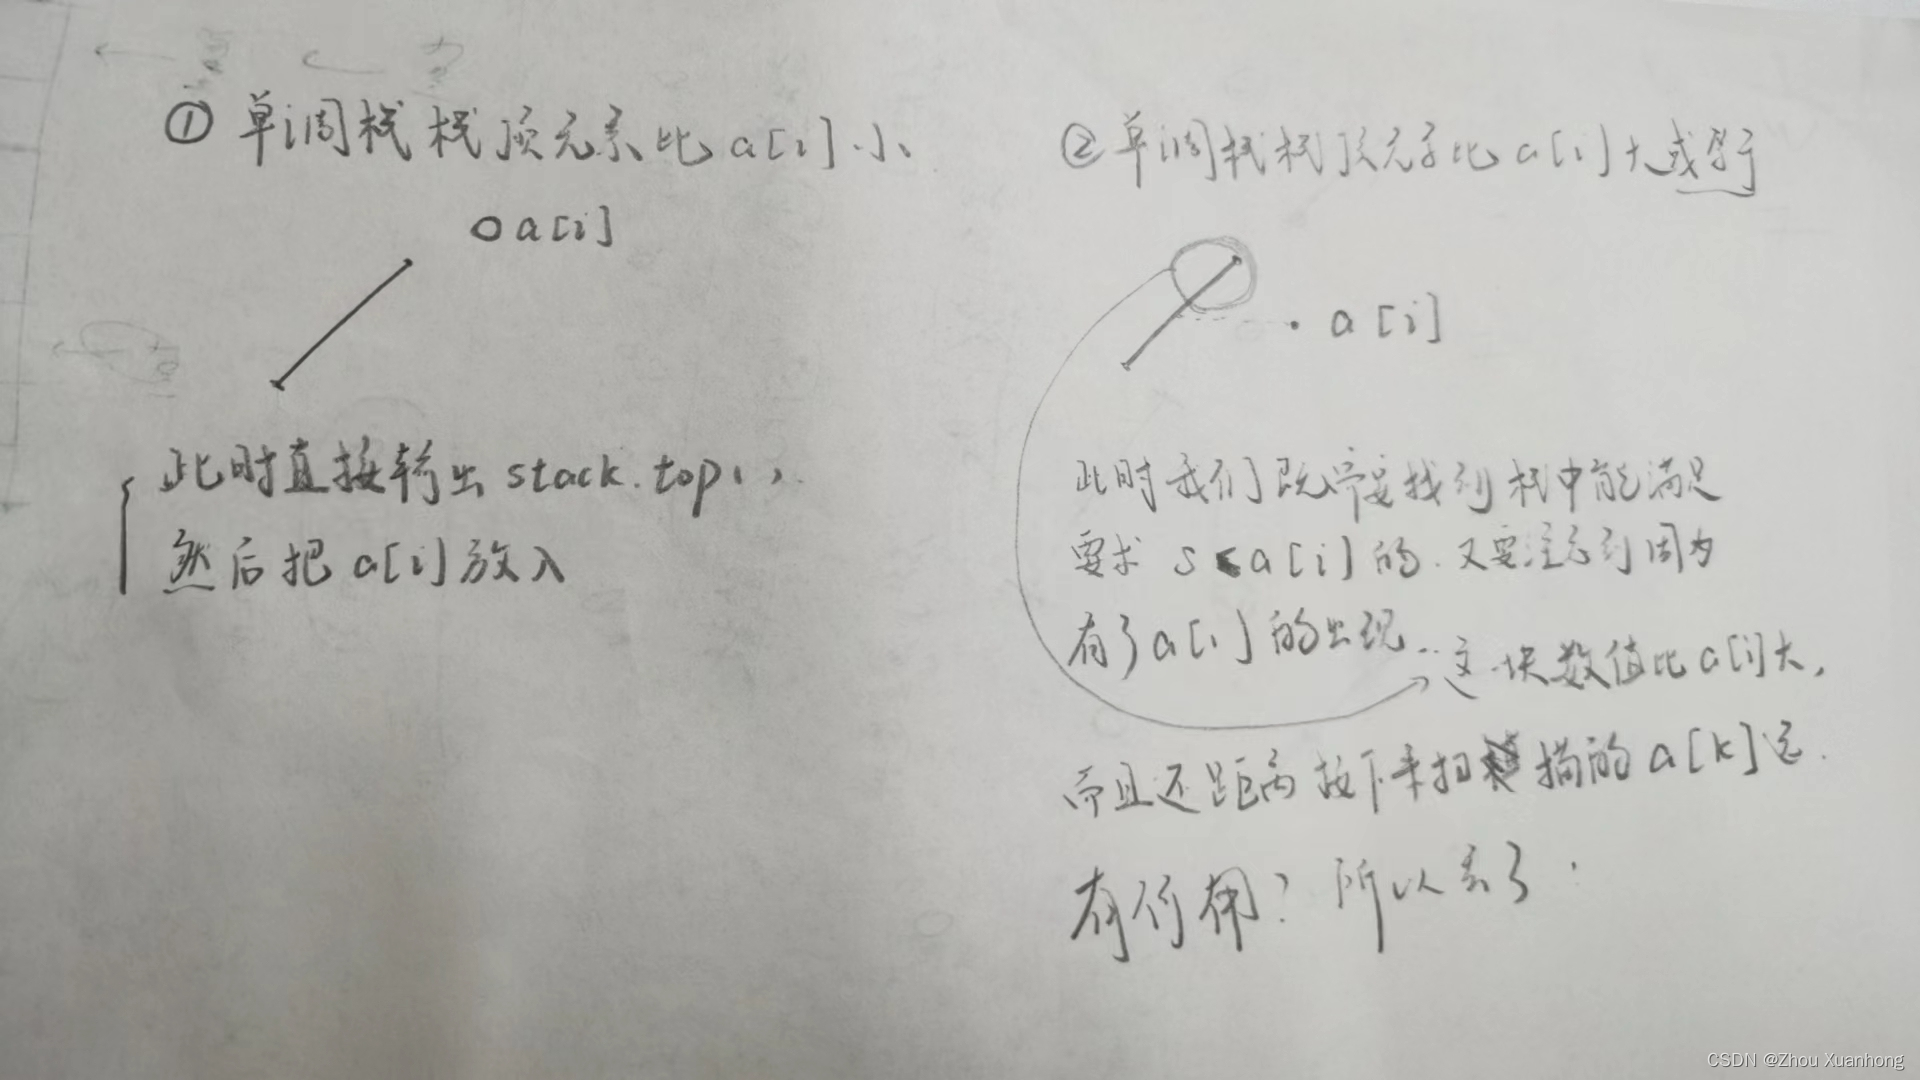 ① 单调栈栈顶元素比a[i]小
a[i]
此时直接输出stack.top()
然后把a[i]放入
② 单调栈栈顶元素比a[i]大或等于
a[i]
此时我们既需要找到栈中能满足
要求 s<a[i]的.又要注意到因为
有了a[i]的出现..这一块数值比a[i]大,
而且还距离接下来扫描的a[k]远.
有何用?所以丢了.
CSDN @Zhou Xuanhong